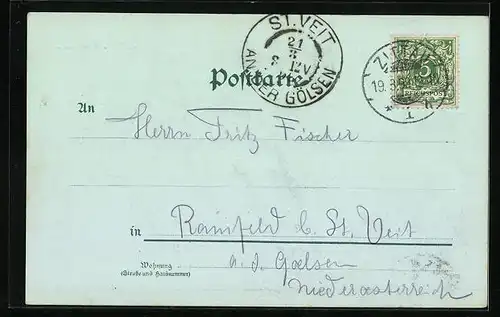 ST. VEIT
21
AN DER GÖLSEN
19.3
5
Postkarte
An
Herrn Fritz Fischer
in Rainfeld b. St. Veit
a. d. Goelsen
Niederoesterreich
Wohnung
(Straße und Hausnummer)